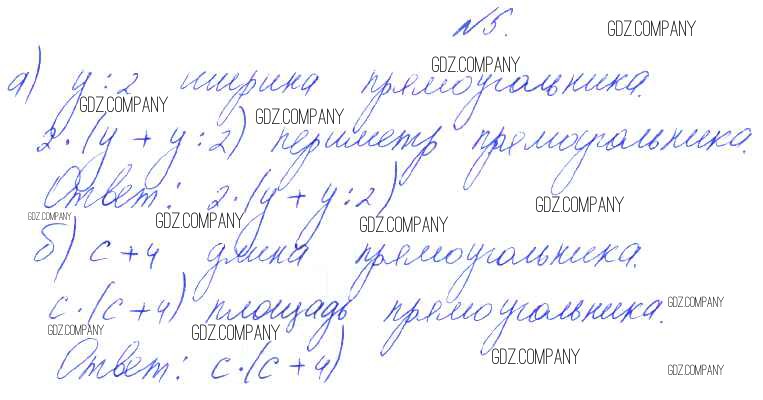 №5. GDZ.COMPANY
GDZ.COMPANY
а) y:2 ширина прямоугольника.
GDZ.COMPANY GDZ.COMPANY
2·(y+y:2) периметр прямоугольника.
Ответ: 2·(y+y:2)
GDZ.COMPANY GDZ.COMPANY GDZ.COMPANY GDZ.COMPANY
б) c+4 длина прямоугольника.
c·(c+4) площадь прямоугольника. GDZ.COMPANY
GDZ.COMPANY GDZ.COMPANY
Ответ: c·(c+4) GDZ.COMPANY
GDZ.COMPANY